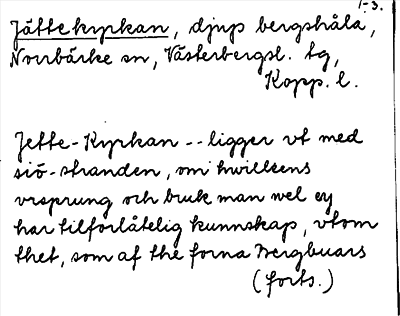 1-3.
Jättekyrkan, djup bergshåla,
Norrbärke sn, Västerbergsl. tg,
Kopp. l.
Jette-Kyrkan -- ligger vt med
siö-stranden, om hwilkens
vrsprung och bruk man wel ey
har tilförlåtelig kunnskap, vtom
thet, som af the forna Bergbuars
(forts.)